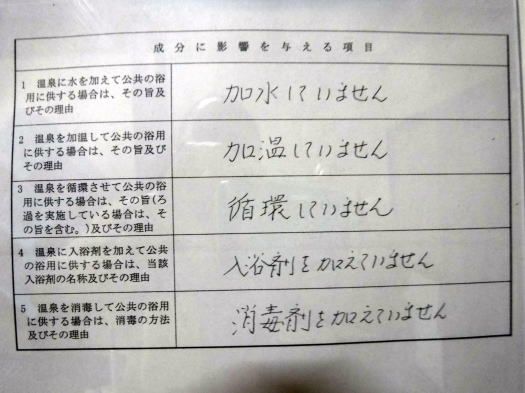 成分に影響を与える項目
1 温泉に水を加えて公共の浴
用に供する場合は、その旨及
びその理由
加水していません
2 温泉を加温して公共の浴用
に供する場合は、その旨及び
その理由
加温していません
3 温泉を循環させて公共の浴
用に供する場合は、その旨(ろ
過を実施している場合は、そ
の旨を含む。)及びその理由
循環していません
4 温泉に入浴剤を加えて公共
の浴用に供する場合は、当該
入浴剤の名称及びその理由
入浴剤を加えていません
5 温泉を消毒して公共の浴用
に供する場合は、消毒の方法
及びその理由
消毒剤を加えていません